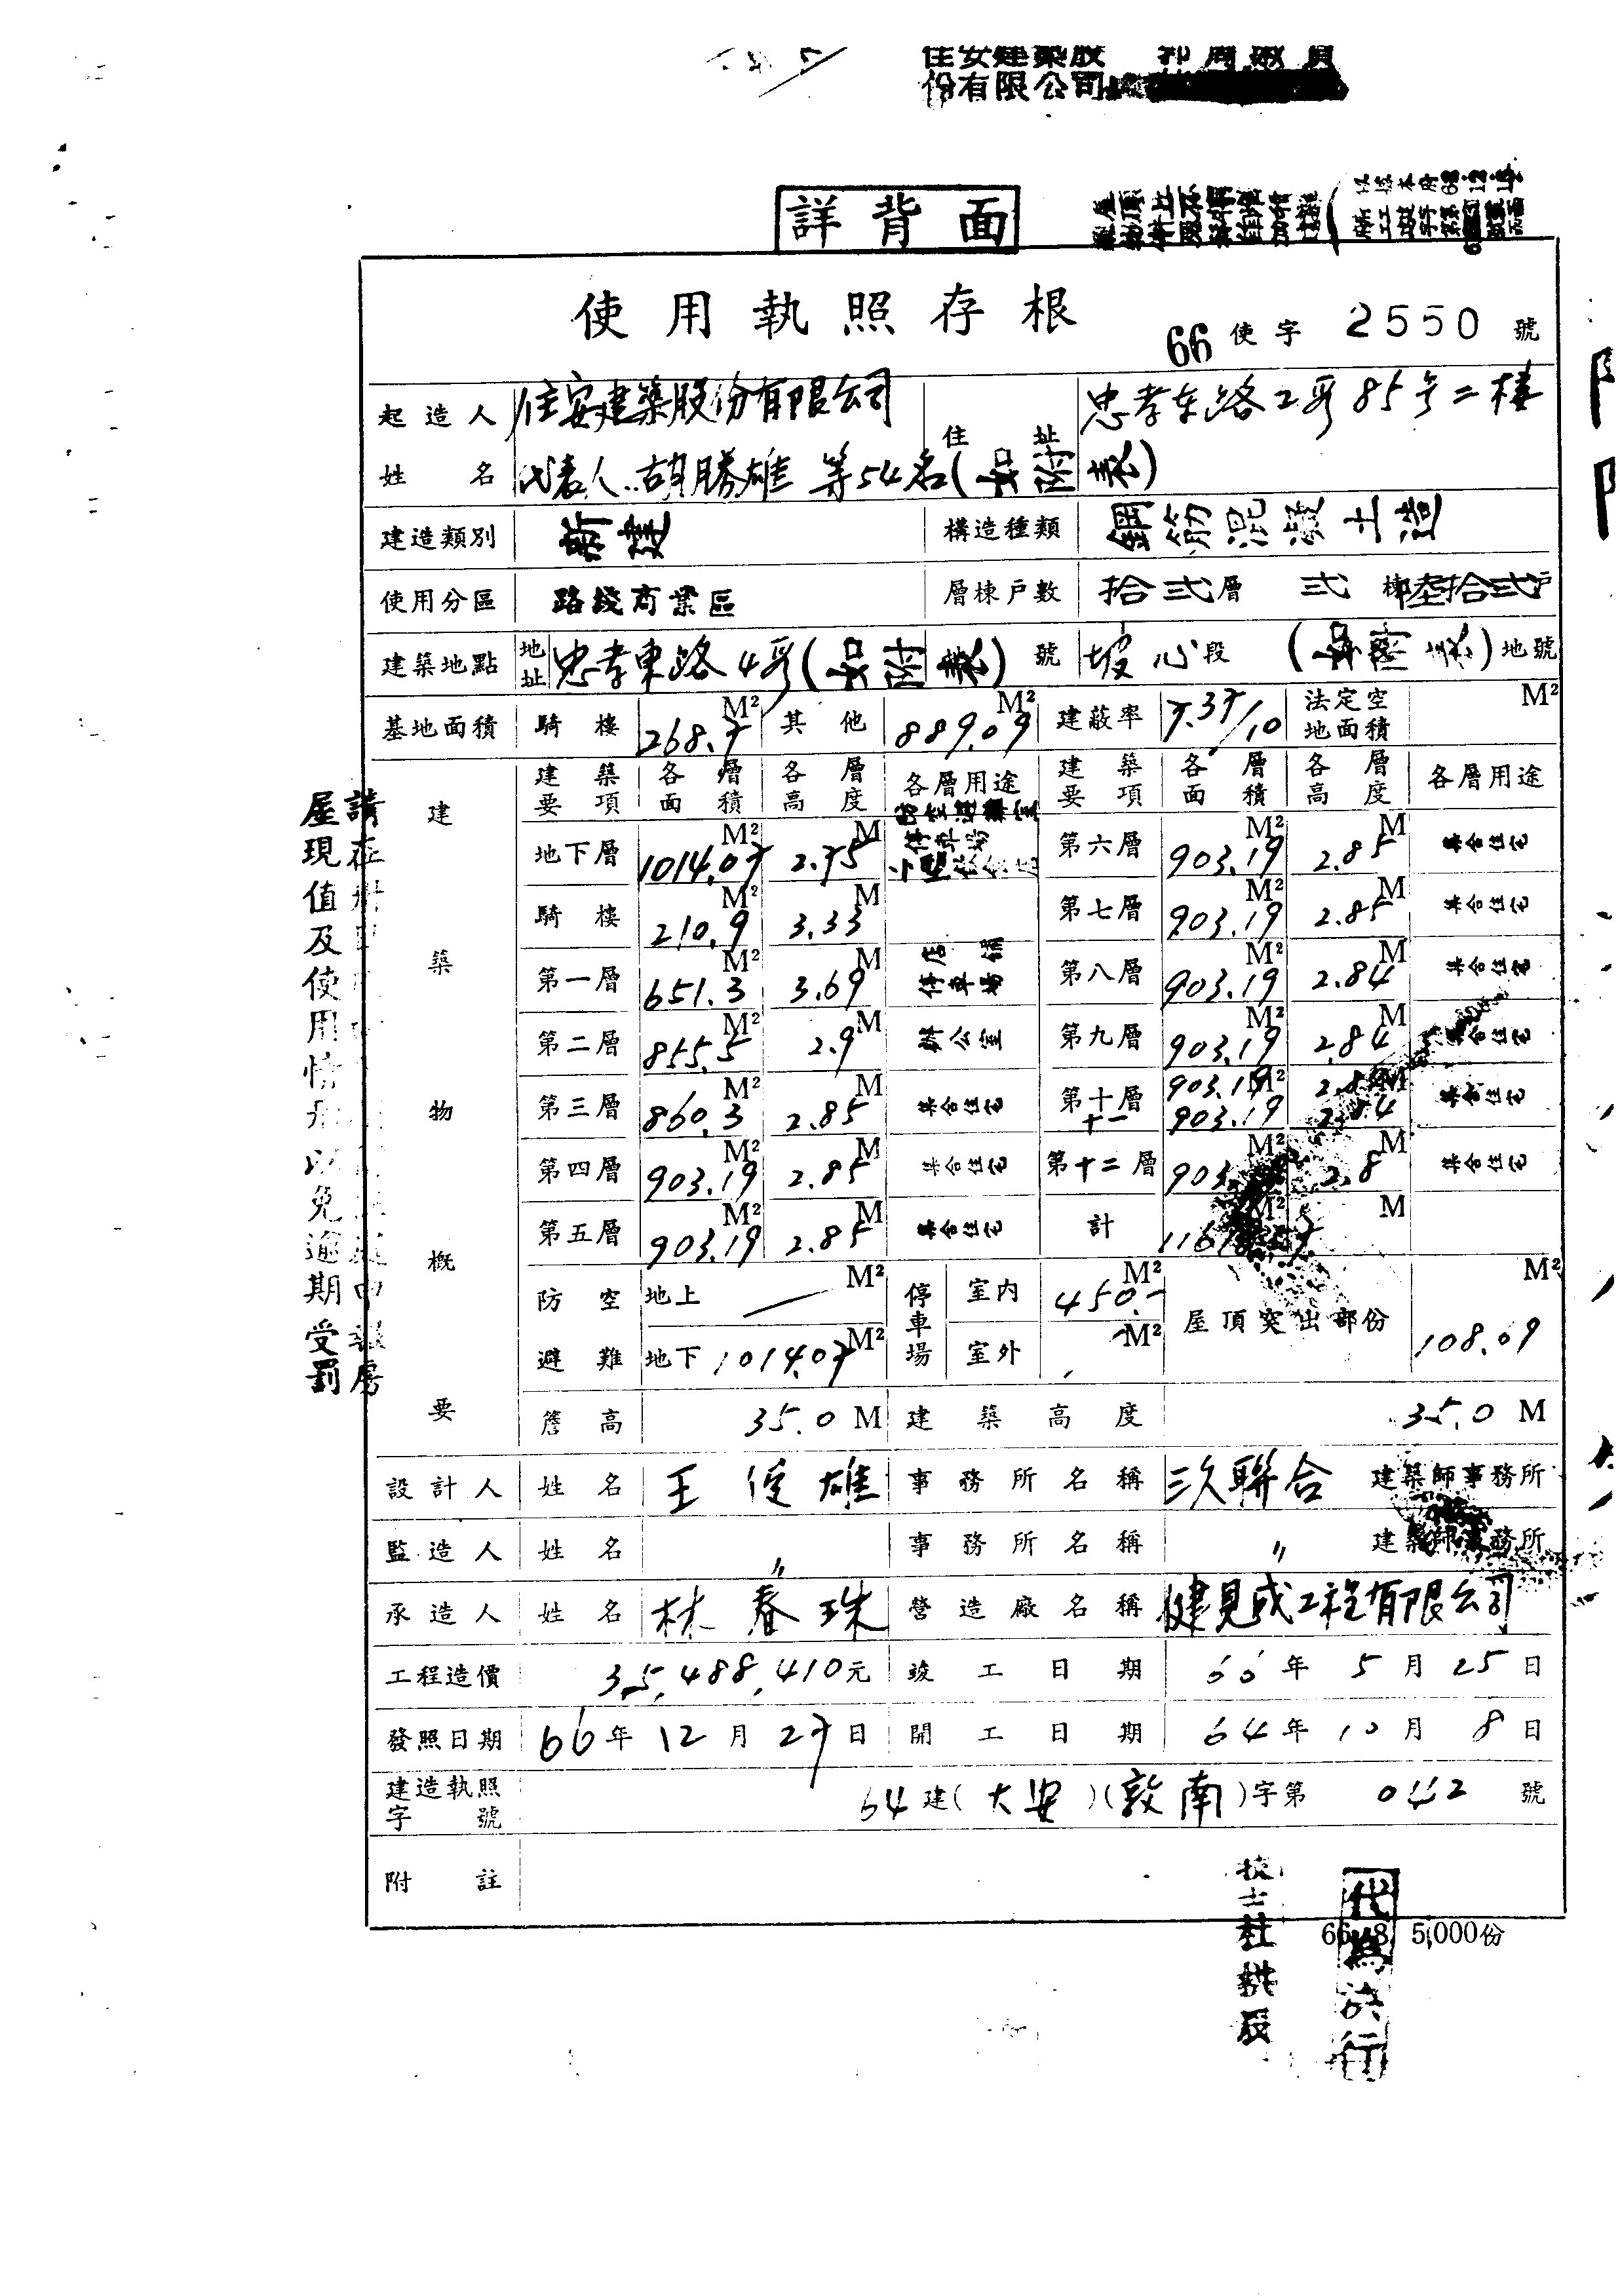 份有限公司
詳背面
使用執照存根
66 使字 2550 號
起造人 住安建築股份有限公司 住址 忠孝东路2段85号二楼
姓名 代表人 胡勝雄 等54名(另附表)
建造類別 新建 構造種類 鋼筋混凝土造
使用分區 路綫商業區 層棟戶數 拾弍層 弍棟陸拾弍戶
建築地點 地址 忠孝東路4段(另附表)號 坡心段 (另附表)地號
基地面積 騎樓 268.7 M² 其他 889.09 M² 建蔽率 7.37/10 法定空地面積 M²
建築物概要
建築要項 各層面積 各層高度 各層用途 建築要項 各層面積 各層高度 各層用途
地下層 1014.07 M² 2.75 M 防空避難室 停車場 第六層 903.19 M² 2.85 M 集合住宅
騎樓 210.9 M² 3.33 M 第七層 903.19 M² 2.85 M 集合住宅
第一層 651.3 M² 3.69 M 店舖 停車場 第八層 903.19 M² 2.84 M 集合住宅
第二層 855.5 M² 2.9 M 辦公室 第九層 903.19 M² 2.84 M 集合住宅
第三層 860.3 M² 2.85 M 集合住宅 第十層 903.19 M² 2.84 M 集合住宅
十一 903.19 2.84
第四層 903.19 M² 2.85 M 集合住宅 第十二層 903. M² 2.8 M 集合住宅
第五層 903.19 M² 2.85 M 集合住宅 計 M² M
防空避難 地上 — M² 停車場 室內 450.- M² 屋頂突出部份 108.09 M²
地下 1014.07 M² 室外 M²
簷高 35.0 M 建築高度 35.0 M
設計人 姓名 王俊雄 事務所名稱 三久聯合 建築師事務所
監造人 姓名 〃 事務所名稱 〃 建築師事務所
承造人 姓名 林春珠 營造廠名稱 健見成工程有限公司
工程造價 35,488,410元 竣工日期 66年5月25日
發照日期 66年12月27日 開工日期 64年10月8日
建造執照字號 64建(大安)(敦南)字第 042 號
附註
屋現值及使用情形以免逾期受罰
66. 8. 5,000份
代為決行